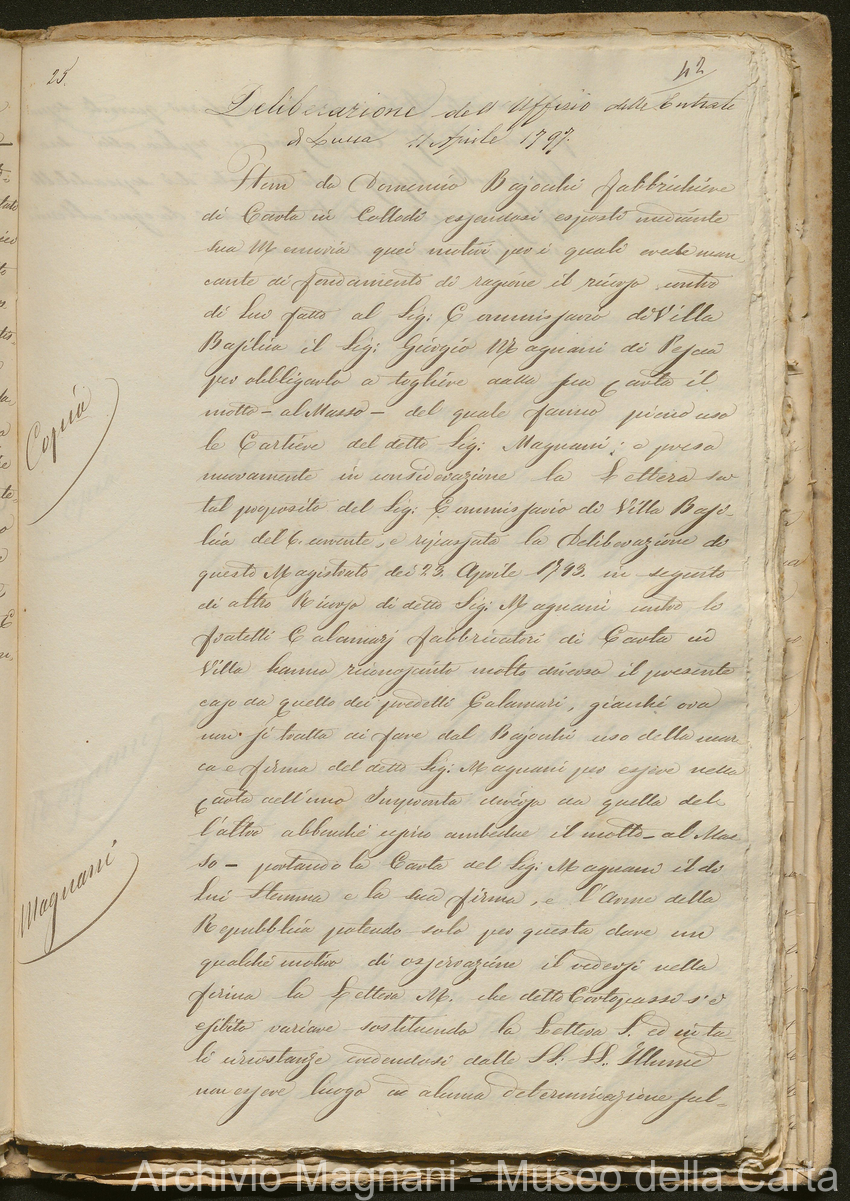 25.
42
Deliberazione dell'Uffizio delle Entrate
di Lucca 11 Aprile 1797.
Item da Domenico Bajocchi fabbrichiere
di Carta in Collodi essendosi esposti mediante
sua Memoria quei motivi per i quali crede man
cante di fondamento di ragione il ricorso contro
di Lui fatto al Sig: Commissario di Villa
Basilica il Sig: Giorgio Magnani di Pescia
per obbligarlo a togliere dalla sua Carta il
motto - al Masso - del quale fanno pieno uso
le Cartiere del detto Sig: Magnani; e presa
nuovamente in considerazione la Lettera su
tal proposito del Sig: Commissario di Villa Basi-
lica del 6. corrente, e riassunta la Deliberazione di
questo Magistrato dei 23. Aprile 1793. in seguito
di altro Ricorso di detto Sig: Magnani contro lo
fratelli Calamarj fabbricatori di Carta in
Villa hanno riconosciuto molto diverso il presente
caso da quello dei predetti Calamari, giacchè ora
non si tratta di fare dal Bajocchi uso della mar
ca e firma del detto Sig: Magnani per essere nella
Carta dell'uno Impronta diversa da quella del-
l'altro abbenchè siavi ambedue il motto - al Mas
so - portando la Carta del Sig: Magnani il di
Lui Stemma e la sua firma, e l'Arme della
Repubblica potendo solo per questa dare un
qualche motivo di osservazione il vedersi nella
firma la Lettera M. che detto Cartopassi s'è
esibito variare sostituendo la Lettera S. ed in ta-
li circostanze credendosi dalle SS: LL. Illume
non essere luogo ad alcuna determinazione sul-
Copia
Magnani
Archivio Magnani - Museo della Carta